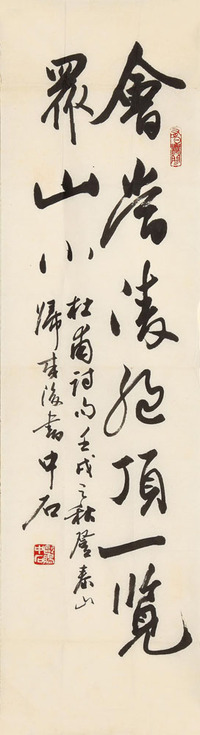 會當凌絕頂一覽
眾山小
杜甫詩句壬戌之秋登泰山
歸來後書中石